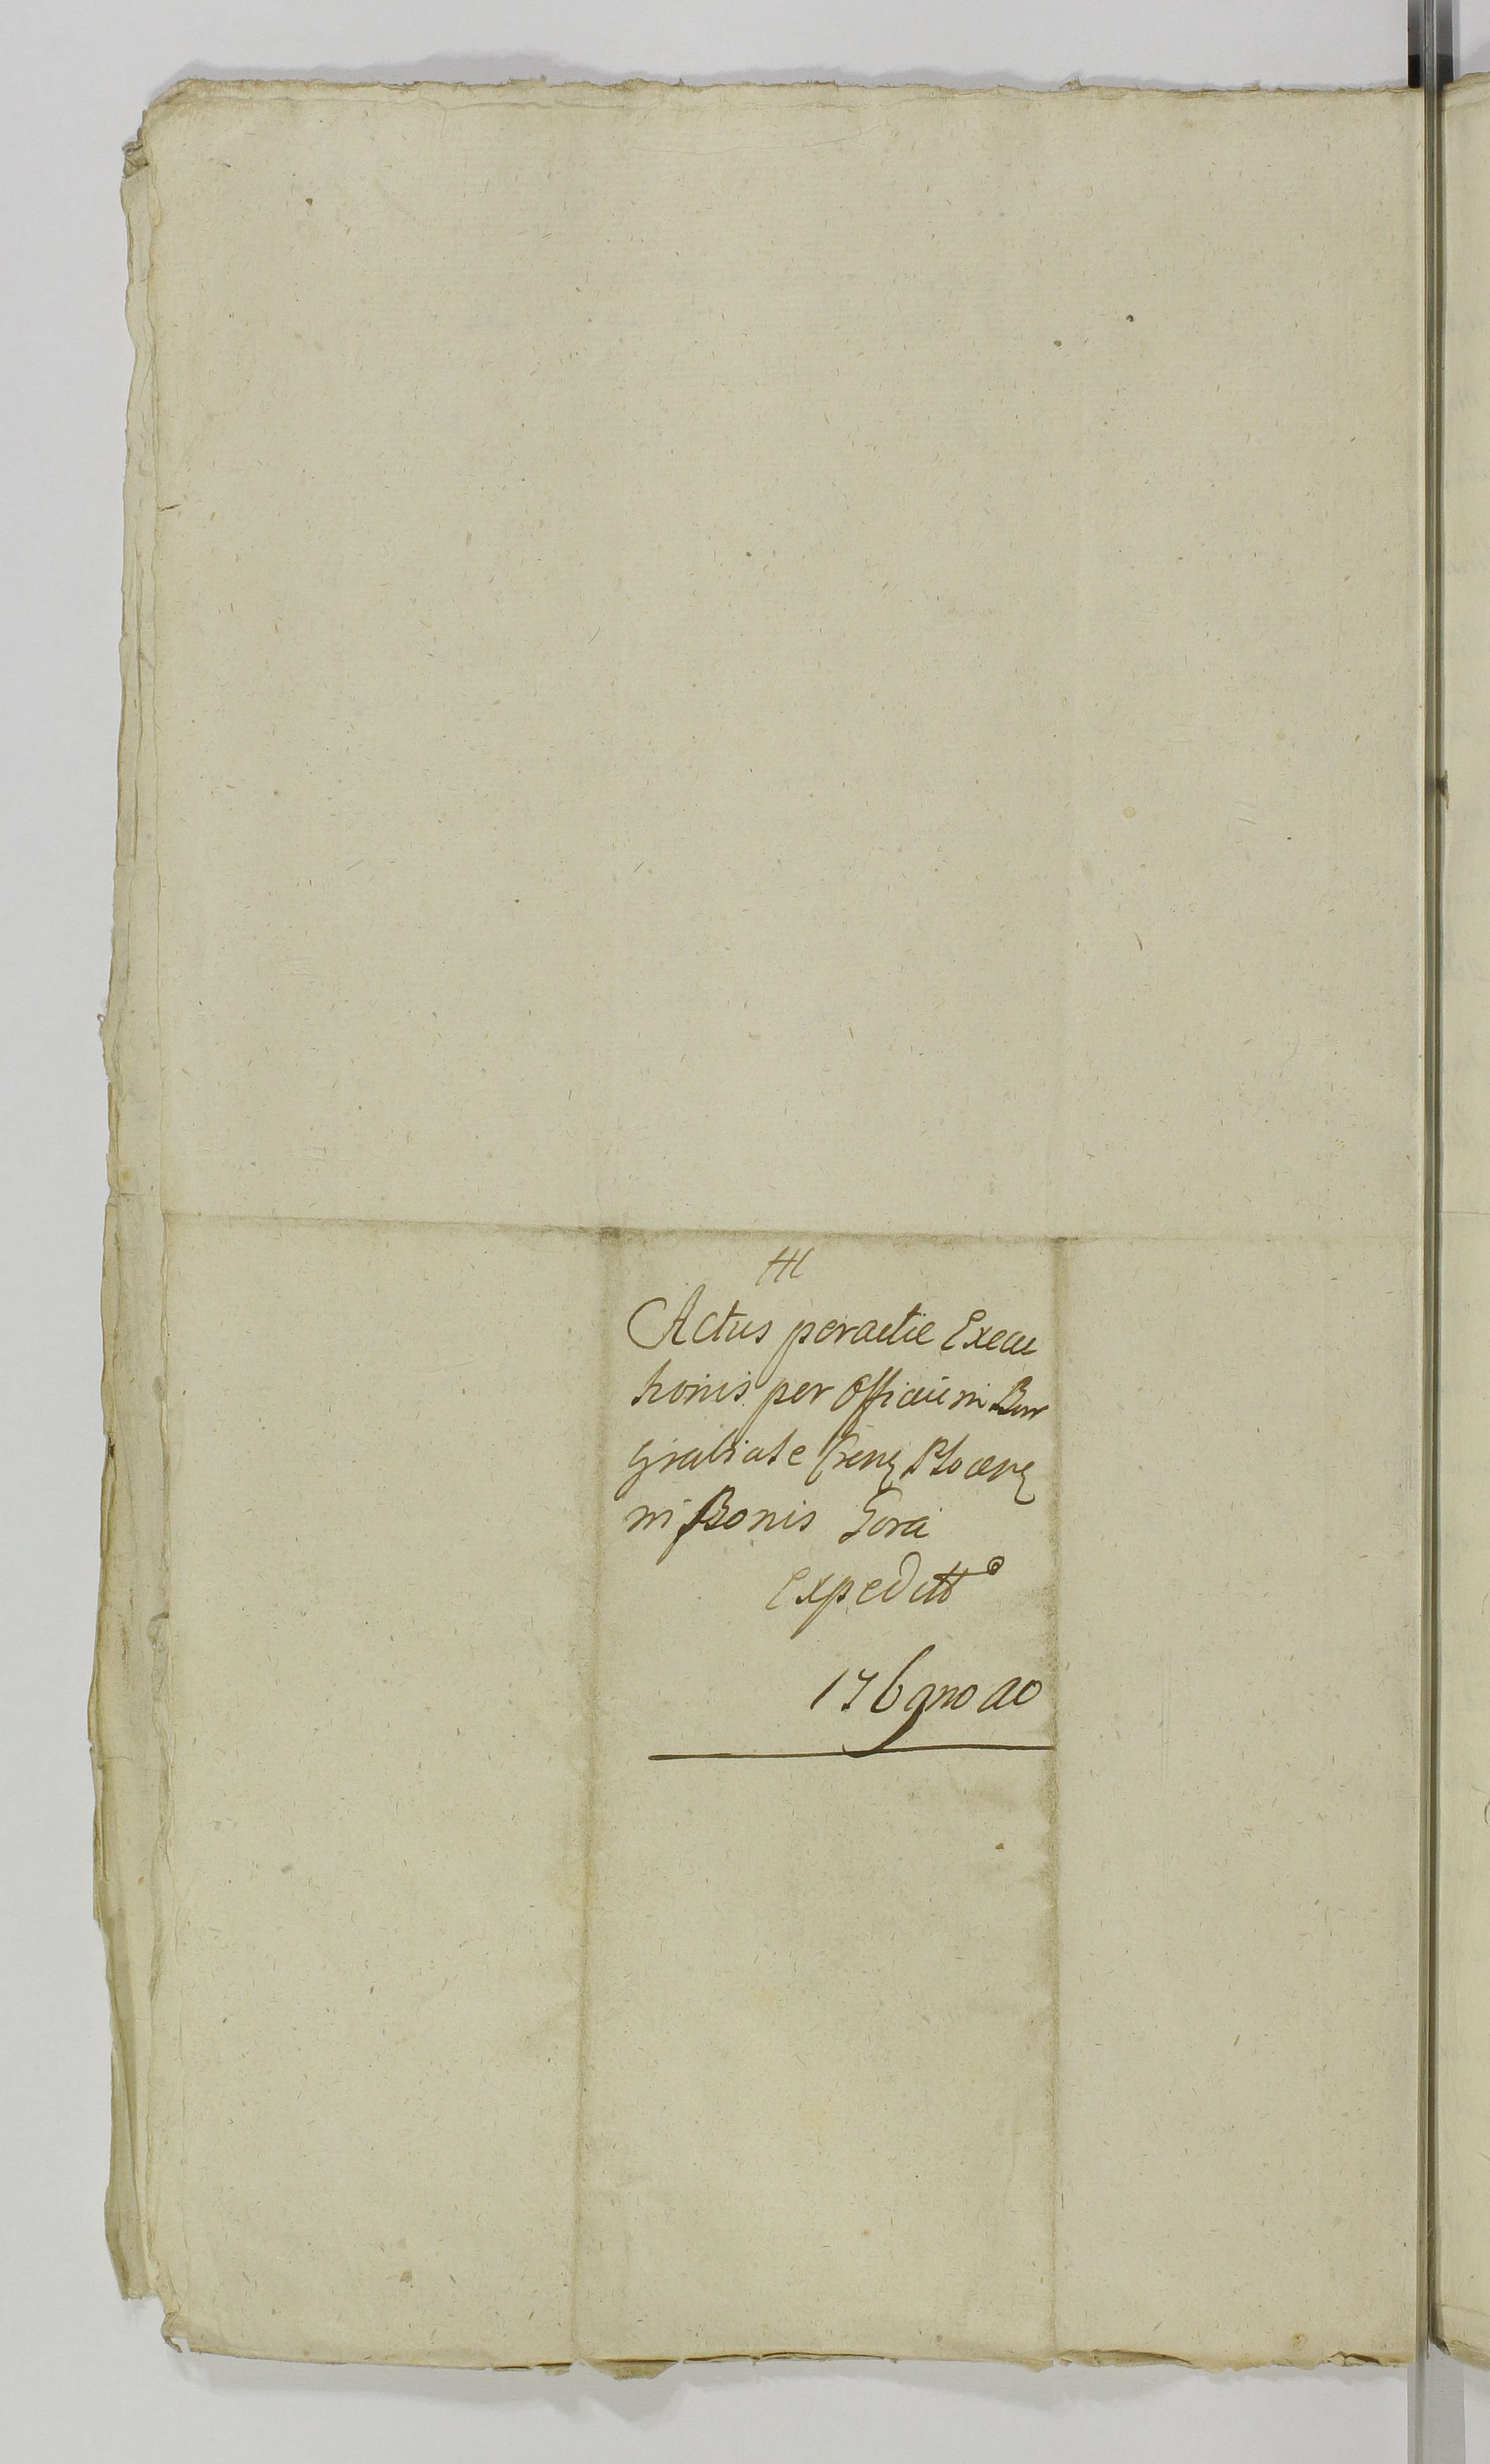 Actus peractæ Execu
tionis per Officium Bur
grabiale Cren̄ Plocen̄
in Bonis Gora
Expedit
1769no ao